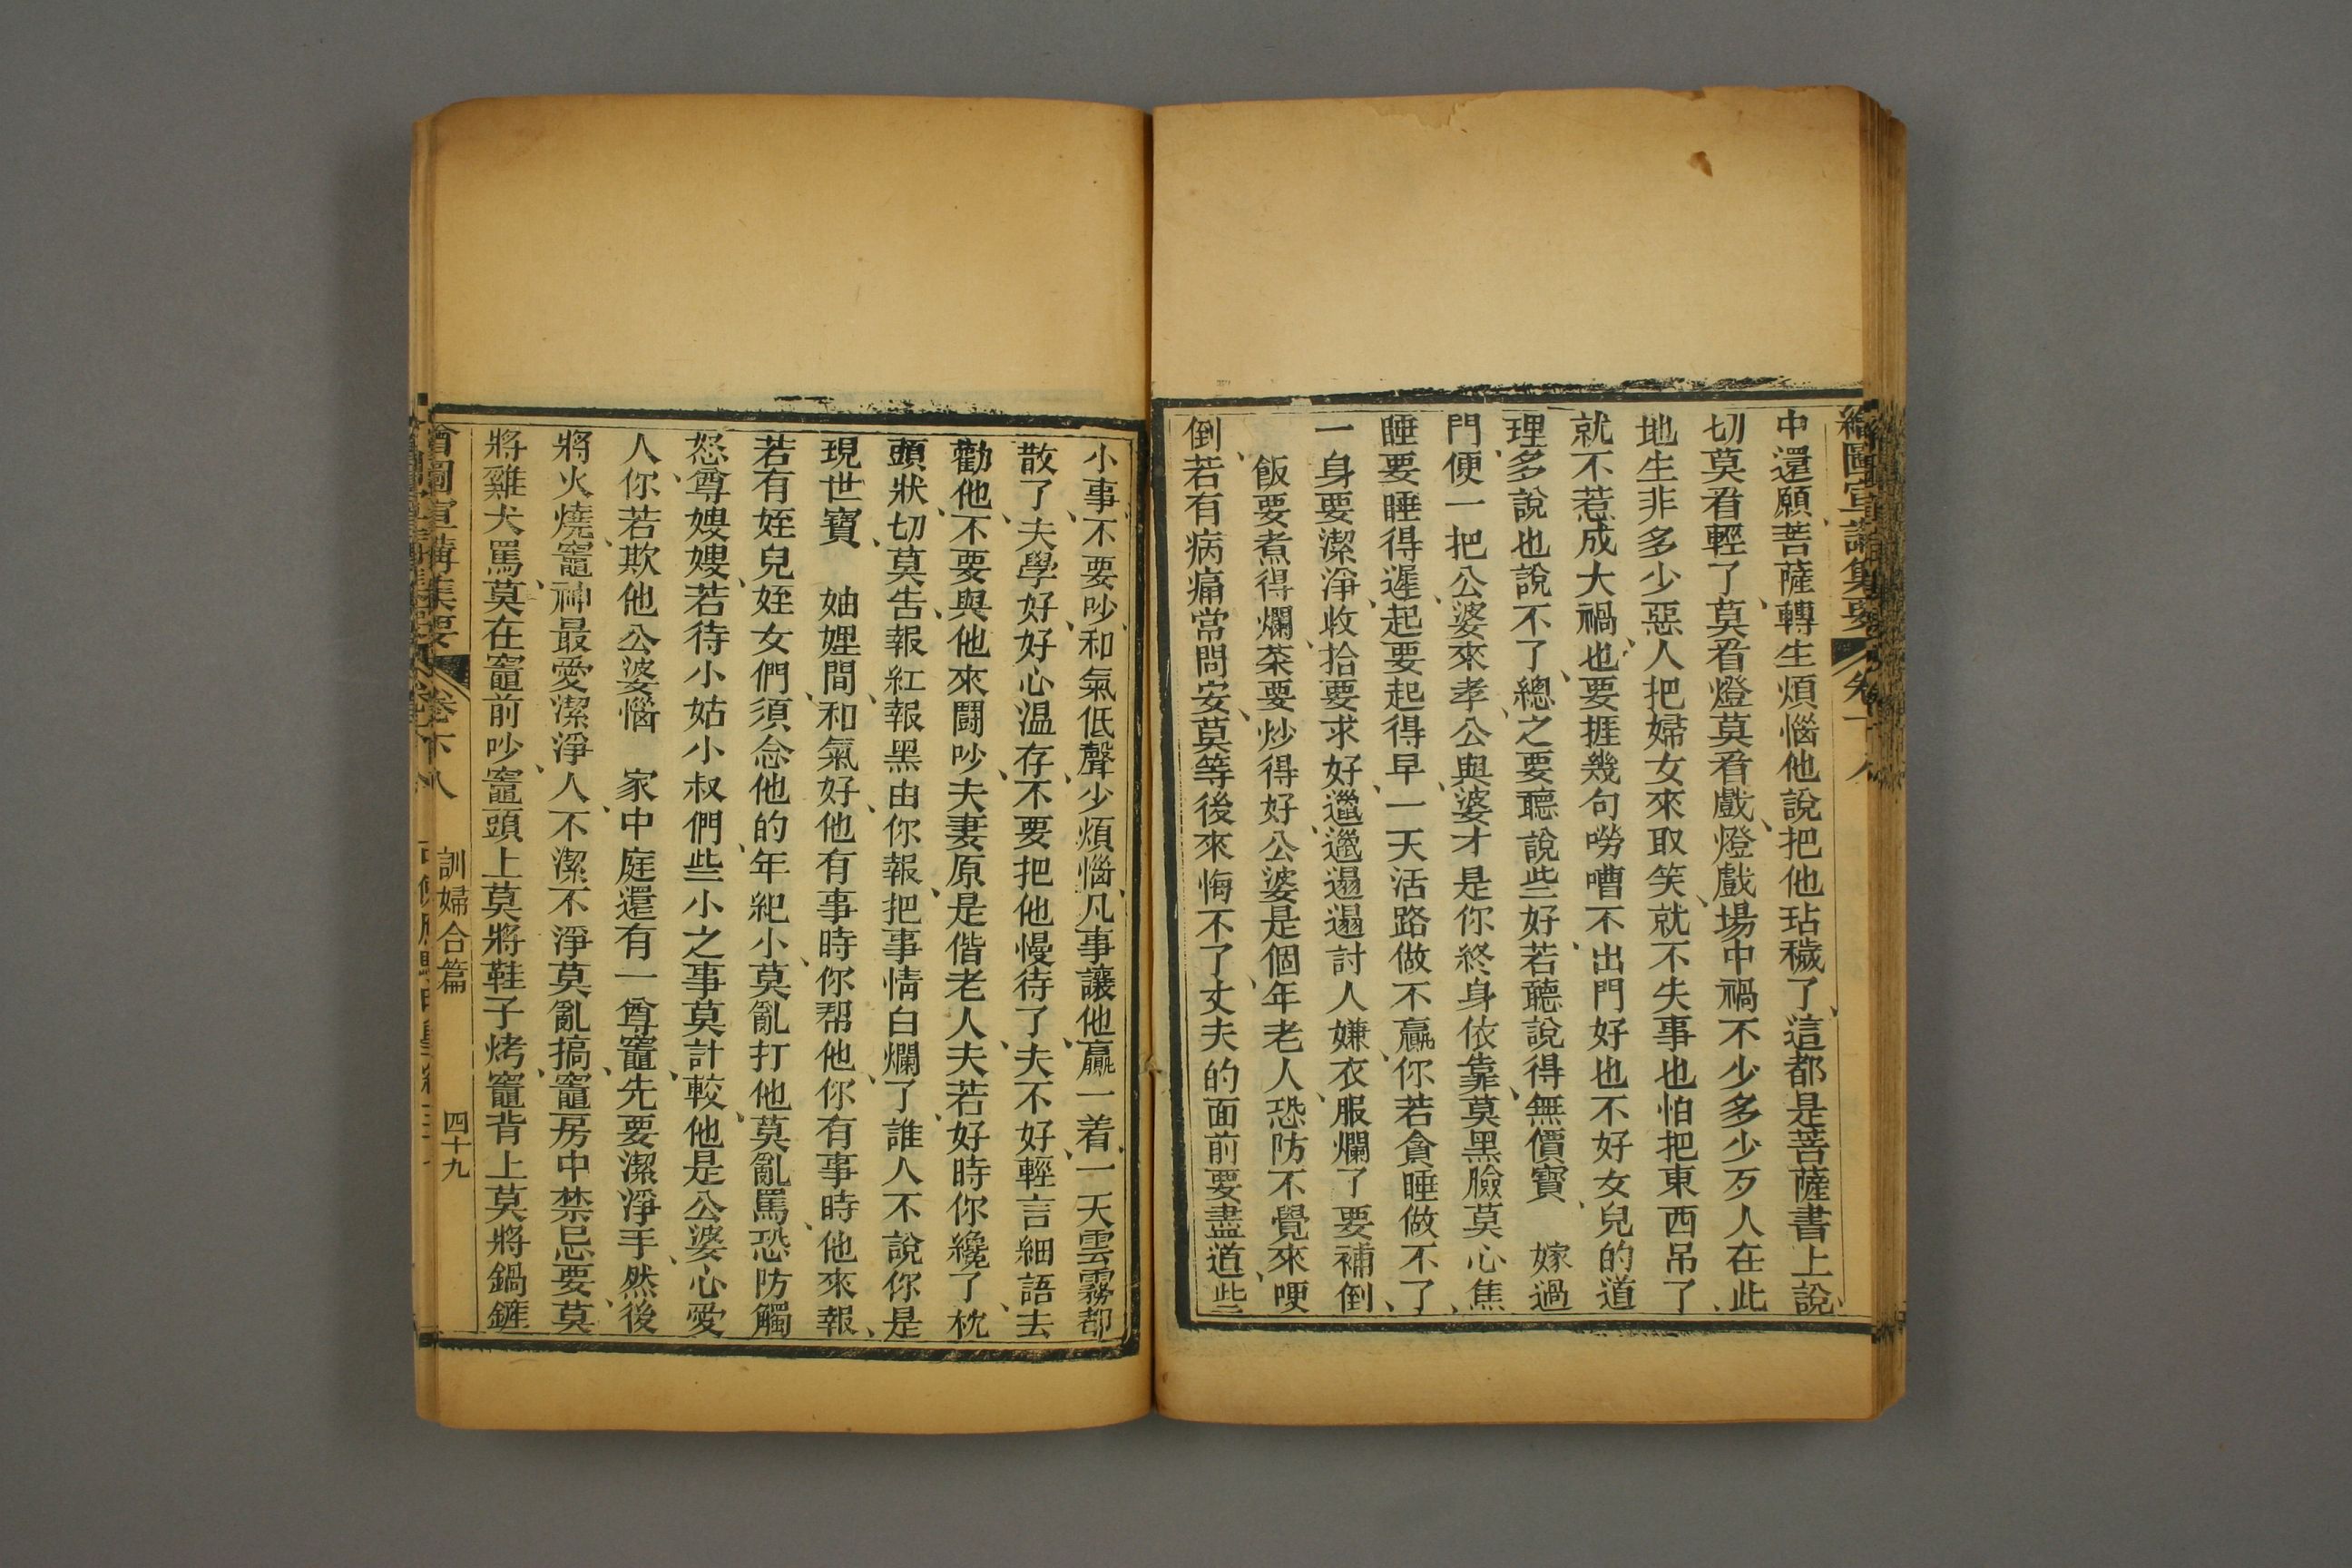 繪圖宣講集要 卷下八
中還願菩薩轉生煩惱他說把他玷穢了這都是菩薩書上說
切莫看輕了莫看燈莫看戲燈戲場中禍不少多少歹人在此
地生非多少惡人把婦女來取笑就不失事也怕把東西吊了
就不惹成大禍也要捱幾句嘮嘈不出門好也不好女兒的道
理多說也說不了總之要聽說些好若聽說得無價寶 嫁過
門便一把公婆來孝公與婆才是你終身依靠莫黑臉莫心焦
睡要睡得遲起要起得早一天活路做不贏你若貪睡做不了
一身要潔淨收拾要求好邋邋遢遢討人嫌衣服爛了要補倒
飯要煮得爛茶要炒得好公婆是個年老人恐防不覺來哽
倒若有病痛常問安莫等後來悔不了丈夫的面前要盡道些
小事不要吵和氣低聲少煩惱凡事讓他贏一着一天雲霧都
散了夫學好好心温存不要把他慢待了夫不好輕言細語去
勸他不要與他來鬪吵夫妻原是偕老人夫若好時你纔了枕
頭狀切莫告報紅報黑由你報把事情白爛了誰人不說你是
現世寶 妯娌間和氣好他有事時你帮他你有事時他來報
若有姪兒姪女們須念他的年紀小莫亂打他莫亂罵恐防觸
怒尊嫂嫂若待小姑小叔們些小之事莫計較他是公婆心愛
人你若欺他公婆惱 家中庭還有一尊竈先要潔淨手然後
將火燒竈神最愛潔淨人不潔不淨莫亂搞竈房中禁忌要莫
將雞犬罵莫在竈前吵竈頭上莫將鞋子烤竈背上莫將鍋鏟
繪圖宣講集要 卷下八 訓婦合篇 四十九